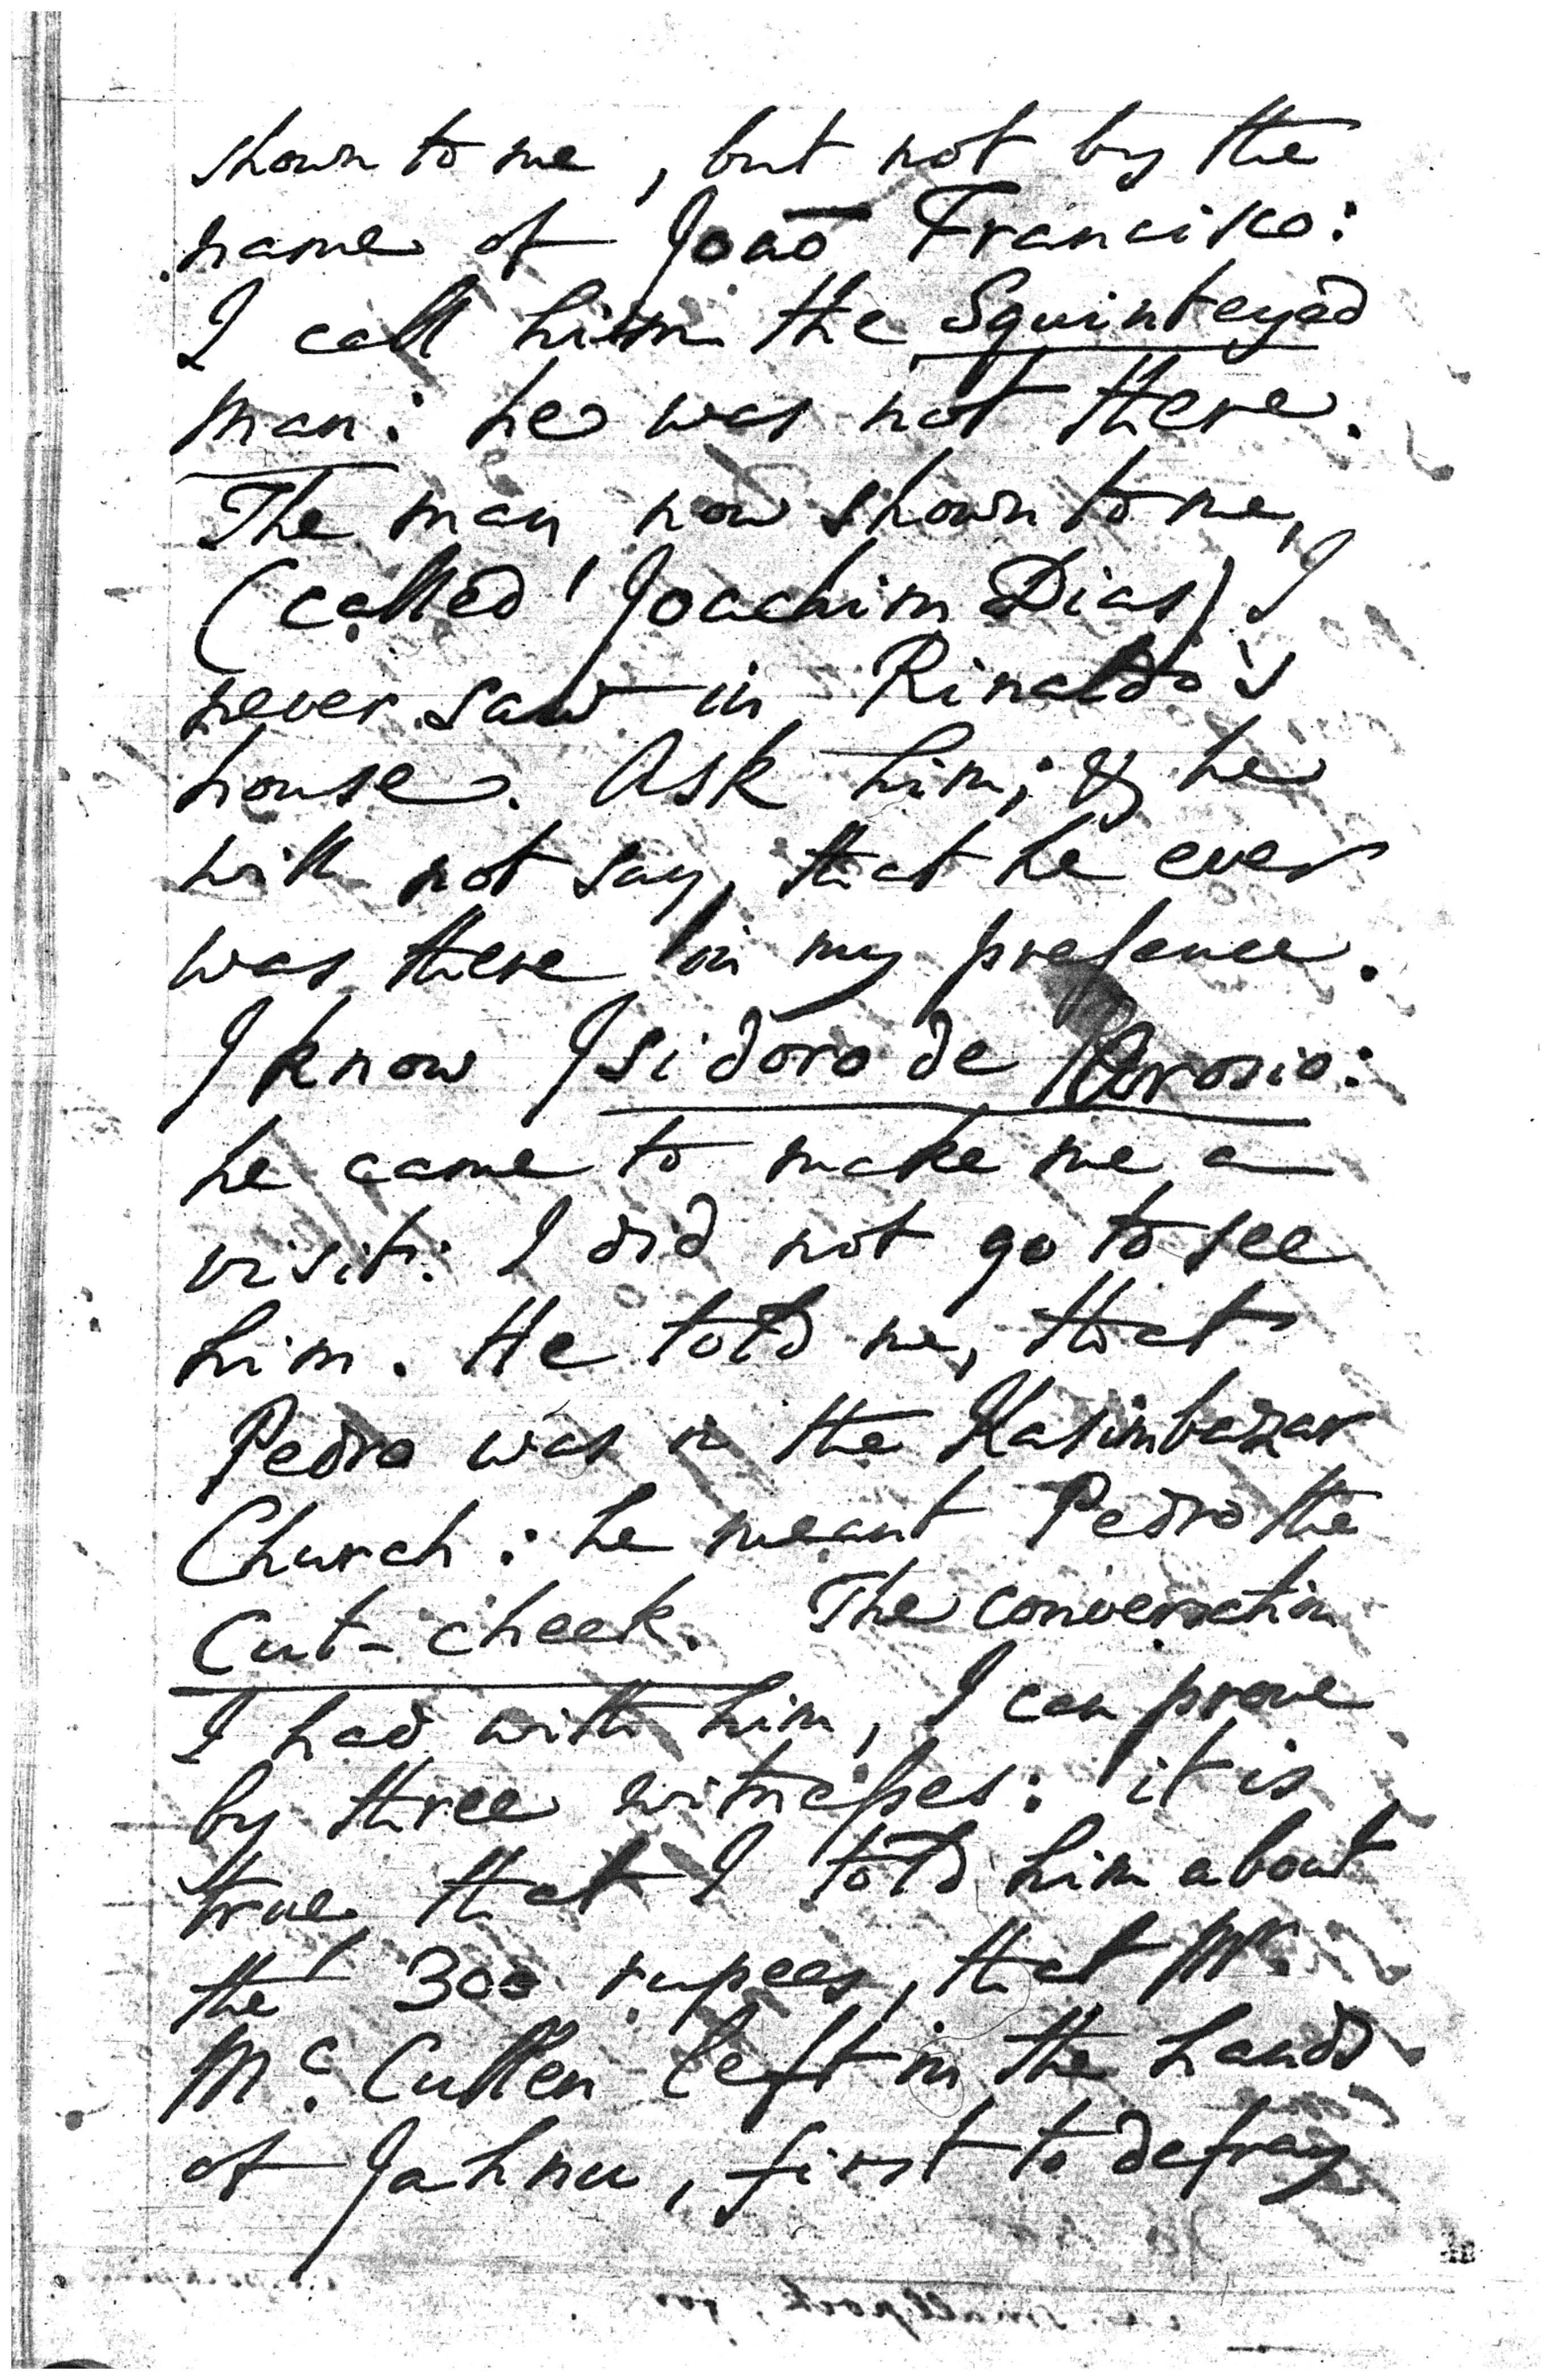 shown to me, but not by the
name of Joaõ Francisco:
I call him the Squinteyed
man: he was not there.
The man now shown to me,
(called Joachim Dias) I
never saw in Rinaldo's
house. Ask him; & he
will not say, that he ever
was there in my presence.
I know Isidoro de Rorosio:
he came to make me a
visit: I did not go to see
him. He told me, that
Pedro was in the Kasimbazar
Church: he meant Pedro the
Cut-cheek. The conversation
I had with him, I can prove
by three witnesses: it is
true that I told him about
the 300 rupees, that Mr.
Mc. Cullen left in the hands
of Jahnu, first to defray